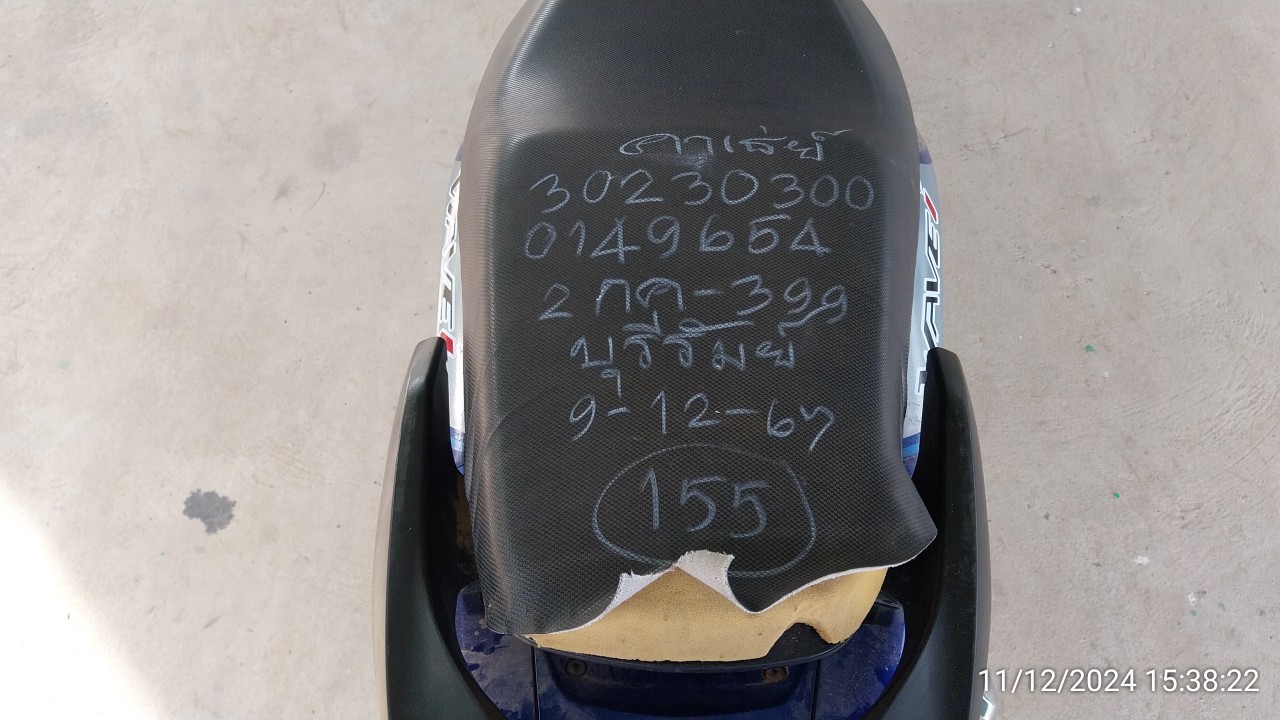 คาเธ่ย์
30230300
0149654
2 กค-399
บุรีรัมย์
9-12-67
155
WAVE
WAVE
11/12/2024 15:38:22